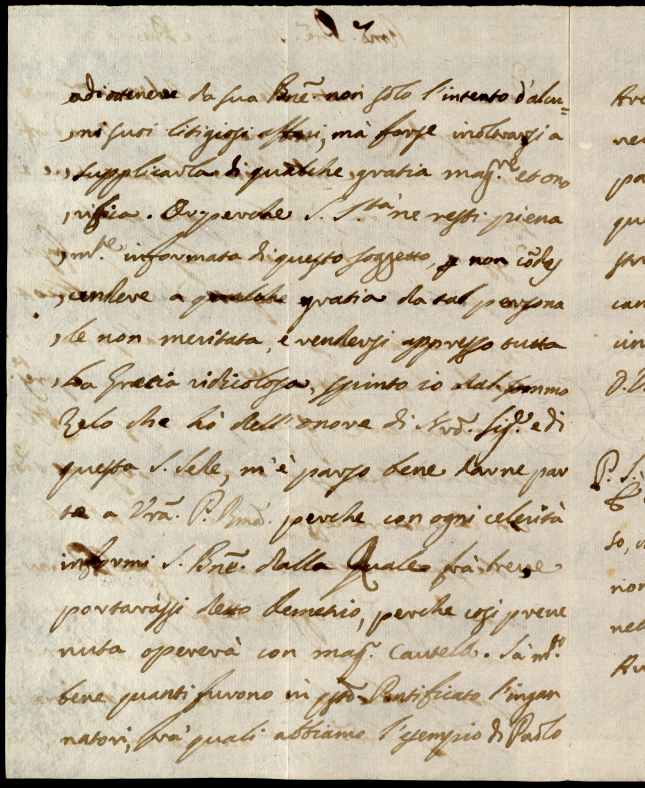 ad ottenere da sua Bne. non solo l'intento d'alcu=
ni suoi litigiosi affari, mà forse inoltrarsi a
supplicarla di qualche gratia mag.re et ono
rifica. Or perche S. S.tà ne resti piena
m.te informata di questo soggetto, e non cõdes
cendere a qualche gratia da tal persona
le non meritata, e rendersi appresso tutta
La Grecia ridicolosa, spinto io dal sommo
Zelo che hò dell'onore di Nrõ. Sig.re e di
questa S. Sede, m'è parso bene darne par
te a Vrã. P. Rmã. perche con ogni celerità
informi S. Bnẽ. dalla Quale frà breve
portaràssi detto Demetrio, perche così preve
nuta opererà con mag.r Cautela. Sà m.to
bene quanti furono in qsto Pontificato l'ingan
natori, frà quali abbiamo l'esempio di Paolo
P. S.
so, 
non